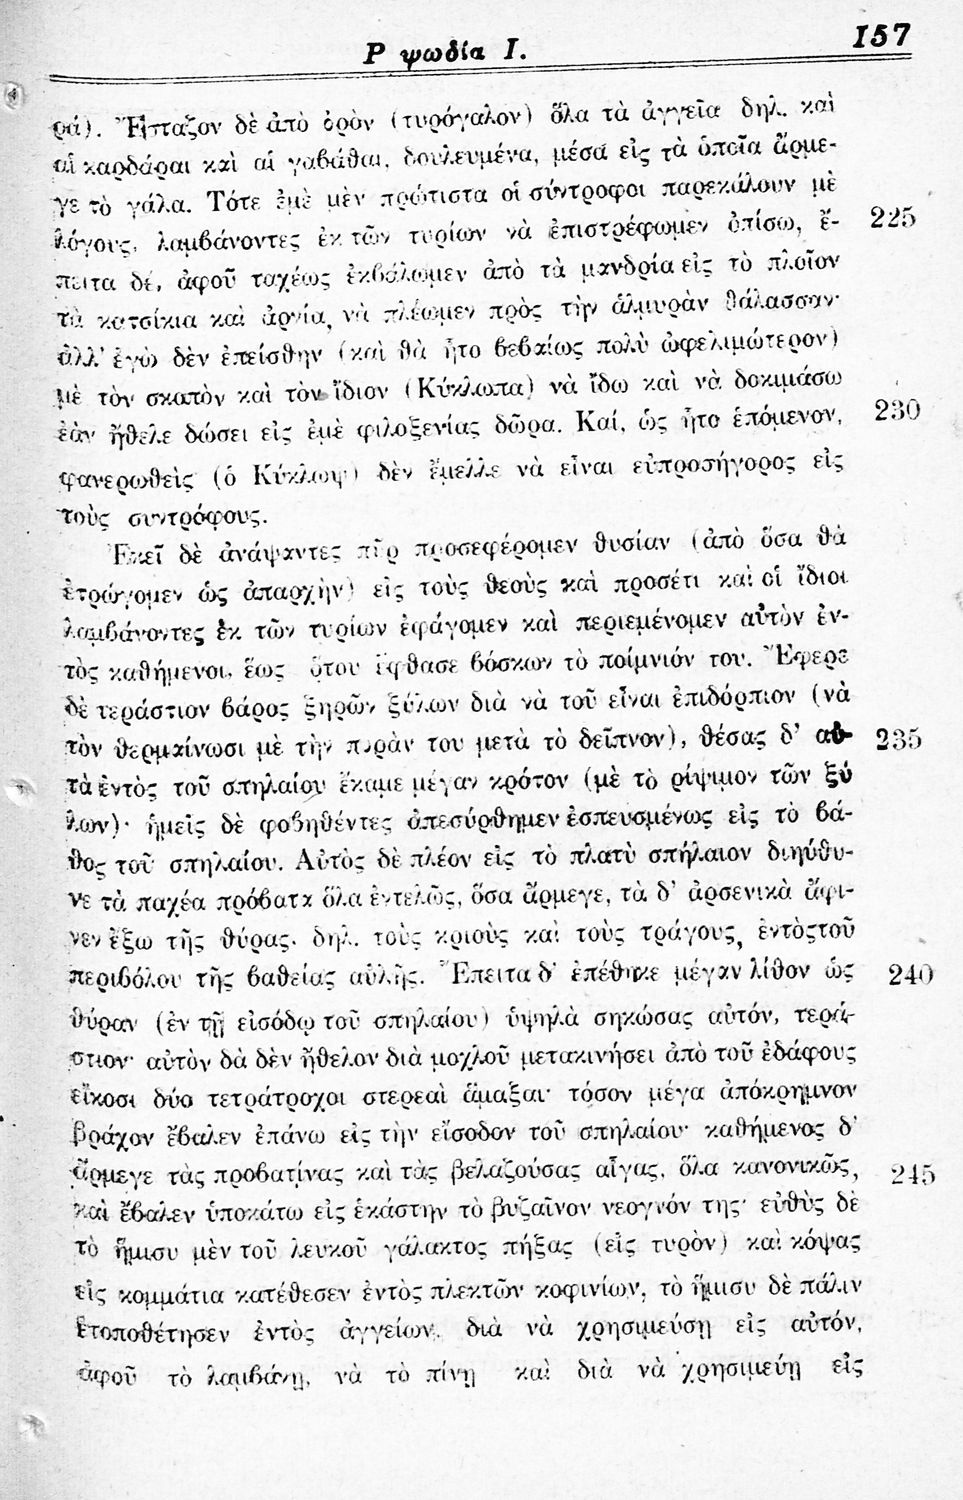 Ρ ψωδία Ι. 157
ρά). Ἔσταζον δὲ ἀπὸ ὀρὸν (τυρόγαλον) ὅλα τὰ ἀγγεῖα δηλ. καὶ
αἱ καρδάραι καὶ αἱ γαβάθαι, δουλευμένα, μέσα εἰς τὰ ὁποῖα ἄρμε-
γε τὸ γάλα. Τότε ἐμὲ μὲν πρώτιστα οἱ σύντροφοι παρεκάλουν μὲ
λόγους, λαμβάνοντες ἐκ τῶν τυρίων νὰ ἐπιστρέφωμεν ὀπίσω, ἔ- 225
πειτα δέ, ἀφοῦ ταχέως ἐκβάλωμεν ἀπὸ τὰ μανδρία εἰς τὸ πλοῖον
τὰ κατσίκια καὶ ἀρνία, νὰ πλέωμεν πρὸς τὴν ἁλμυρὰν θάλασσαν·
ἀλλ' ἐγὼ δὲν ἐπείσθην (καὶ θὰ ἦτο βεβαίως πολὺ ὠφελιμώτερον)
μὲ τὸν σκοπὸν καὶ τὸν ἴδιον (Κύκλωπα) νὰ ἴδω καὶ νὰ δοκιμάσω
ἐὰν ἤθελε δώσει εἰς ἐμὲ φιλοξενίας δῶρα. Καί, ὡς ἦτο ἑπόμενον, 230
φανερωθεὶς (ὁ Κύκλωψ) δὲν ἔμελλε νὰ εἶναι εὐπροσήγορος εἰς
τοὺς συντρόφους.
Ἐκεῖ δὲ ἀνάψαντες πῦρ προσεφέρομεν θυσίαν (ἀπὸ ὅσα θὰ
ἐτρώγομεν ὡς ἀπαρχὴν) εἰς τοὺς θεοὺς καὶ προσέτι καὶ οἱ ἴδιοι
λαμβάνοντες ἐκ τῶν τυρίων ἐφάγομεν καὶ περιεμένομεν αὐτὸν ἐν-
τὸς καθήμενοι, ἕως ὅτου ἔφθασε βόσκων τὸ ποίμνιόν του. Ἔφερε
δὲ τεράστιον βάρος ξηρῶν ξύλων διὰ νὰ τοῦ εἶναι ἐπιδόρπιον (νὰ
τὸν θερμαίνωσι μὲ τὴν πυρὰν του μετὰ τὸ δεῖπνον), θέσας δ' αὐ- 235
τὰ ἐντὸς τοῦ σπηλαίου ἔκαμε μέγαν κρότον (μὲ τὸ ρίψιμον τῶν ξύ
λων)· ἡμεῖς δὲ φοβηθέντες ἀπεσύρθημεν ἐσπευσμένως εἰς τὸ βά-
θος τοῦ σπηλαίου. Αὐτὸς δὲ πλέον εἰς τὸ πλατὺ σπήλαιον διηύθυ-
νε τὰ παχέα πρόβατα ὅλα ἐντελῶς, ὅσα ἄρμεγε, τὰ δ' ἀρσενικὰ ἄφι-
νεν ἔξω τῆς θύρας. δηλ. τοὺς κριοὺς καὶ τοὺς τράγους, ἐντὸςτοῦ
περιβόλου τῆς βαθείας αὐλῆς. Ἔπειτα δ' ἐπέθηκε μέγαν λίθον ὡς 240
θύραν (ἐν τῇ εἰσόδῳ τοῦ σπηλαίου) ὑψηλὰ σηκώσας αὐτόν, τερά-
στιον· αὐτὸν δὰ δὲν ἤθελον διὰ μοχλοῦ μετακινήσει ἀπὸ τοῦ ἐδάφους
εἴκοσι δύο τετράτροχοι στερεαὶ ἅμαξαι· τόσον μέγα ἀπόκρημνον
βράχον ἔβαλεν ἐπάνω εἰς τὴν εἴσοδον τοῦ σπηλαίου· καθήμενος δ'
ἄρμεγε τὰς προβατίνας καὶ τὰς βελαζούσας αἶγας, ὅλα κανονικῶς, 245
καὶ ἔβαλεν ὑποκάτω εἰς ἑκάστην τὸ βυζαῖνον νεογνόν της· εὐθὺς δὲ
τὸ ἥμισυ μὲν τοῦ λευκοῦ γάλακτος πήξας (εἰς τυρὸν) καὶ κόψας
εἰς κομμάτια κατέθεσεν ἐντὸς πλεκτῶν κοφινίων, τὸ ἥμισυ δὲ πάλιν
ἐτοποθέτησεν ἐντὸς ἀγγείων, διὰ νὰ χρησιμεύσῃ εἰς αὐτόν,
ἀφοῦ τὸ λαμβάνῃ, νὰ τὸ πίνῃ καὶ διὰ νὰ χρησιμεύῃ εἰς